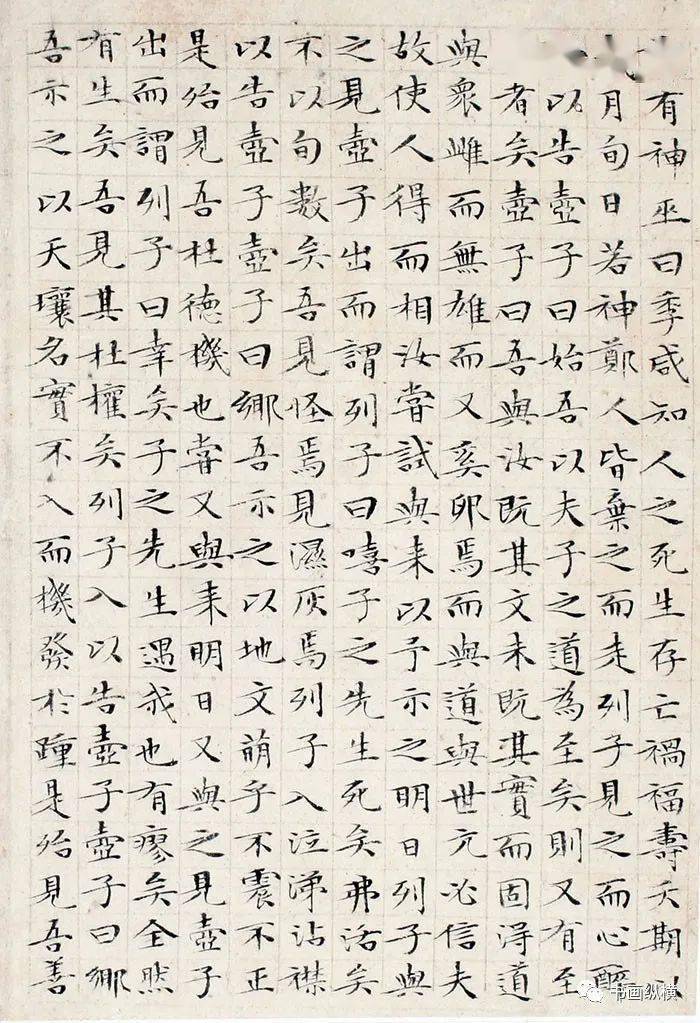 有神巫曰季咸知人之死生存亡禍福壽夭期以
月旬日若神鄭人皆棄之而走列子見之而心醉
以告壺子曰始吾以夫子之道為至矣則又有至
者矣壺子曰吾與汝既其文未既其實而固得道
與衆雌而無雄而又奚卵焉而與道與世亢必信夫
故使人得而相汝嘗試與来以予示之明日列子與
之見壺子出而謂列子曰嘻子之先生死矣弗活矣
不以旬數矣吾見怪焉見濕灰焉列子入泣涕沾襟
以告壺子壺子曰鄉吾示之以地文萌乎不震不正
是殆見吾杜德機也嘗又與来明日又與之見壺子
出而謂列子曰幸矣子之先生遇我也有瘳矣全然
有生矣吾見其杜權矣列子入以告壺子壺子曰鄉
吾示之以天壤名實不入而機發於踵是殆見吾善
书画纵横